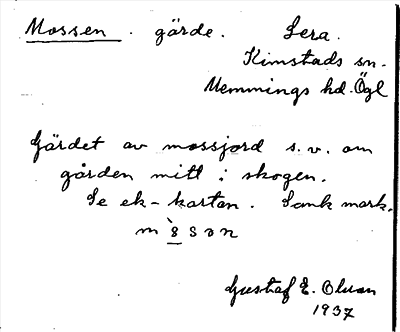 Mossen. gärde. Lera.
Kimstads sn.
Memmings hd. Ögl
Gärdet av mossjord s.v. om
gården mitt i skogen.
Se ek-kartan. Sank mark.
Gustaf E. Olson
1937